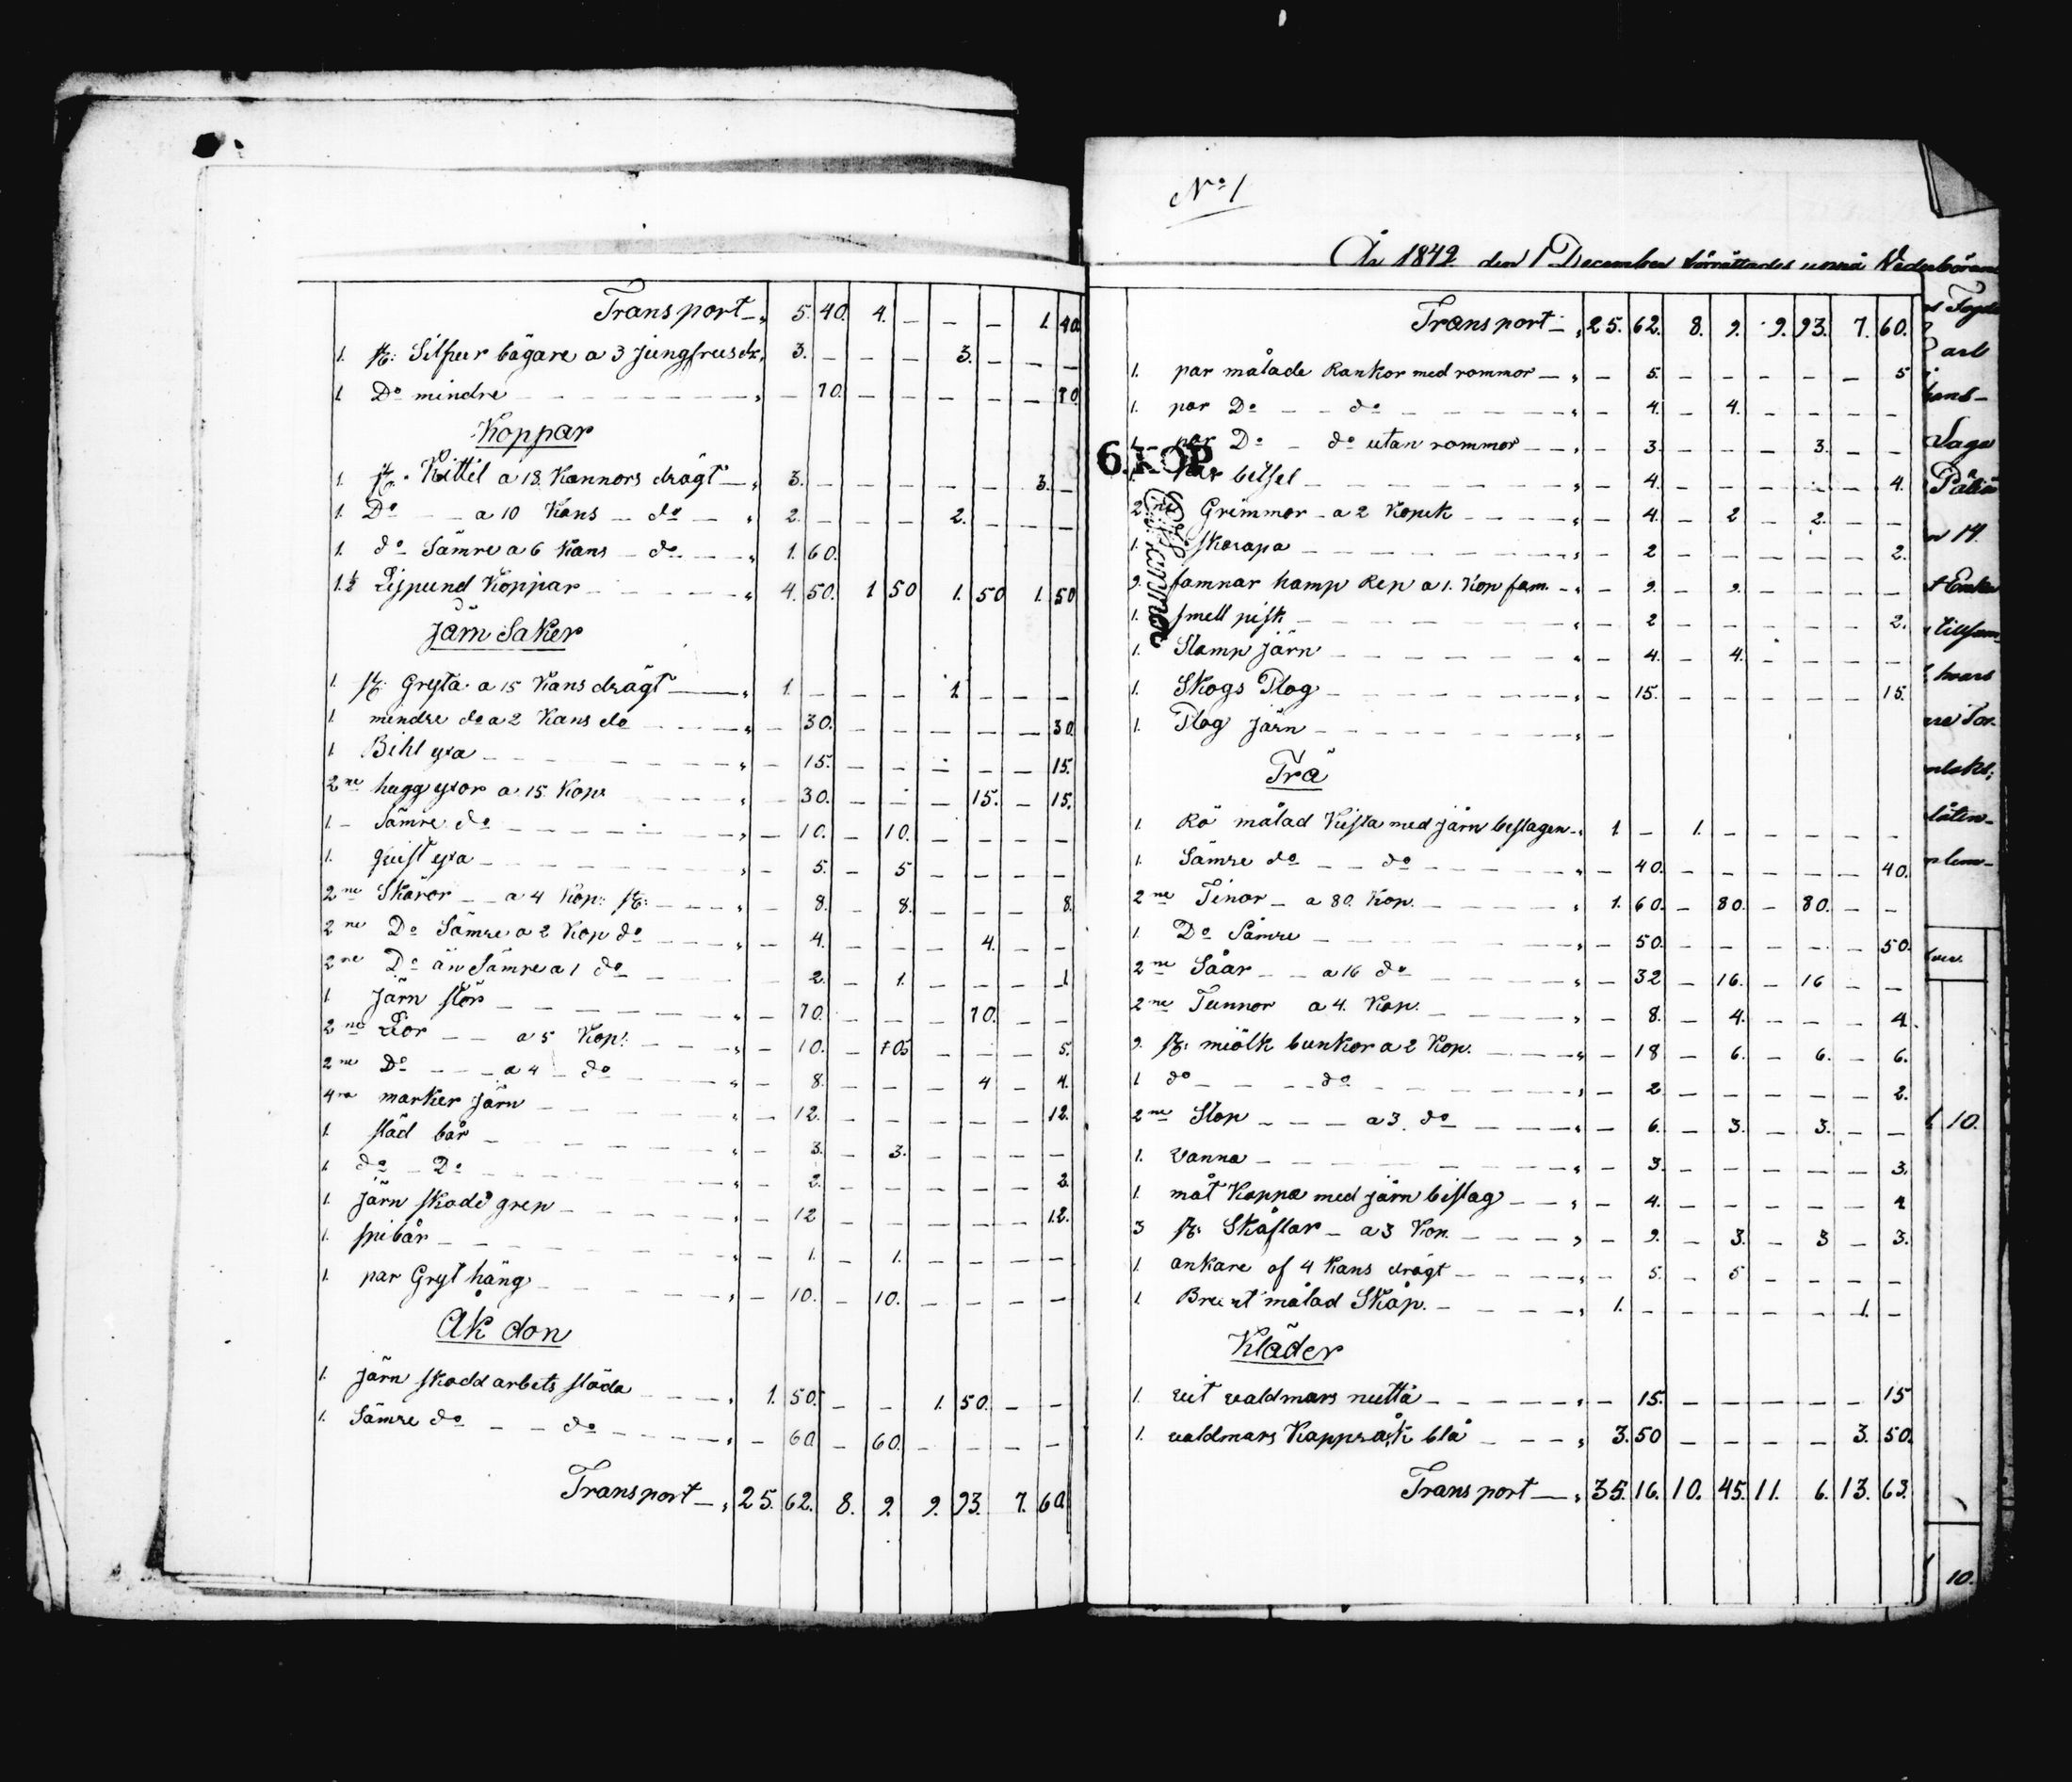 Transport 5. 40. 4. – – – 1. 40
1. st: Silfver bägare a 3 jungfrus dr. 3. – – – 3. – – –
1. Do mindre – 70. – – – – – 70.
Koppar
1. st: Kittel a 18 Kannors drägt 3. – – – – – 3. –
1. Do a 10 Kans do 2. – – – 2. – – –
1. do Sämre a 6 Kans do 1. 60.
1.½ Lispund Koppar 4. 50. 1 50 1. 50 1. 50
Järn Saker
1. st: Gryta a 15 Kans drägt 1. – – – 1. – – –
1. mindre do a 2 Kans do – 30. – – – – – 30.
1. Bihl yxa – 15. – – – – – 15.
2ne hugg yxor a 15 Kop. – 30. – – – 15. – 15.
1. Sämre do – 10. – 10. – – – –
1. quist yxa – 5. – 5 – – – –
2ne Skäror a 4 Kop: st: – 8. – 8. – – – 8.
2ne Do Sämre a 2 Kop do – 4. – – – 4. – –
2ne Do än Sämre a 1 do – 2. – 1. – – – 1
1. Järn stör – 70. – – – 70. – –
2ne Lior a 5 Kop: – 10. – 5 – – – 5.
2ne Do a 4 do – 8. – – – 4 – 4.
4ra marker Järn – 12. – – – – – 12.
1. städ bår – 3. – 3. – – – –
1. do Do – 2. – – – – – 2.
1. Järn skodd grep – 12 – – – – – 12.
1. spi bår – 1. – 1. – – – –
1. par Gryt häng – 10. – 10. – – – –
Åk don
1. Järn skodd arbets släda 1. 50. – – 1. 50. – –
1. Sämre do do – 60 – 60. – – – –
Transport 25. 62. 8. 9. 9. 93. 7. 60.
No 1
År 1842 den 1 December förrättades
Transport 25. 62. 8. 9. 9. 93. 7. 60.
1. par målade Rankor med rommor – 5. – – – – – 5
1. par Do do – 4. – 4. – – – –
1. par Do do utan rommor – 3. – – – 3. – –
6.KOP
1. par betsel – 4. – – – – – 4.
2ne Grimmor a 2 Kopek – 4. – 2 – 2. – –
1. skrapa – 2 – – – – – 2.
9. famnar hamp Rep a 1. Kop fam. – 9. – 9. – – – –
1. smell pisk – 2 – – – – – 2.
1. Stamp järn – 4. – 4. – – – –
1. Skogs Plog – 15. – – – – – 15.
1. Plog järn –
Trä
1. Rö målad Kista med järn beslagen 1 – 1. – – – – –
1. Sämre do do – 40. – – – – – 40.
2ne Tinor a 80. Kop. 1. 60. – 80. – 80. – –
1. Do Sämre – 50. – – – – – 50.
2ne Såar a 16 do – 32 – 16. – 16 – –
2ne Tunnor a 4. Kop. – 8. – 4. – – – 4.
9. st: miölk bunkor a 2 Kop. – 18 – 6. – 6. – 6.
1 do do – 2 – – – – – 2.
2ne Stop a 3. do – 6. – 3. – 3. – –
1. Vanna – 3. – – – – – 3.
1. måt Kappa med järn beslag – 4. – – – – – 4
3 st: Skåflar a 3 Kop. – 9. – 3. – 3 – 3.
1. ankare of 4 Kans drägt – 5. – 5 – – – –
1. målad Skåp. 1. – – – – – 1. –
Kläder
1. vit valdmars mutta – 15. – – – – – 15
1. valdmars Kappråk blå 3. 50 – – – – 3. 50.
Transport 35. 16. 10. 45. 11. 6. 13. 63.
10.
10.